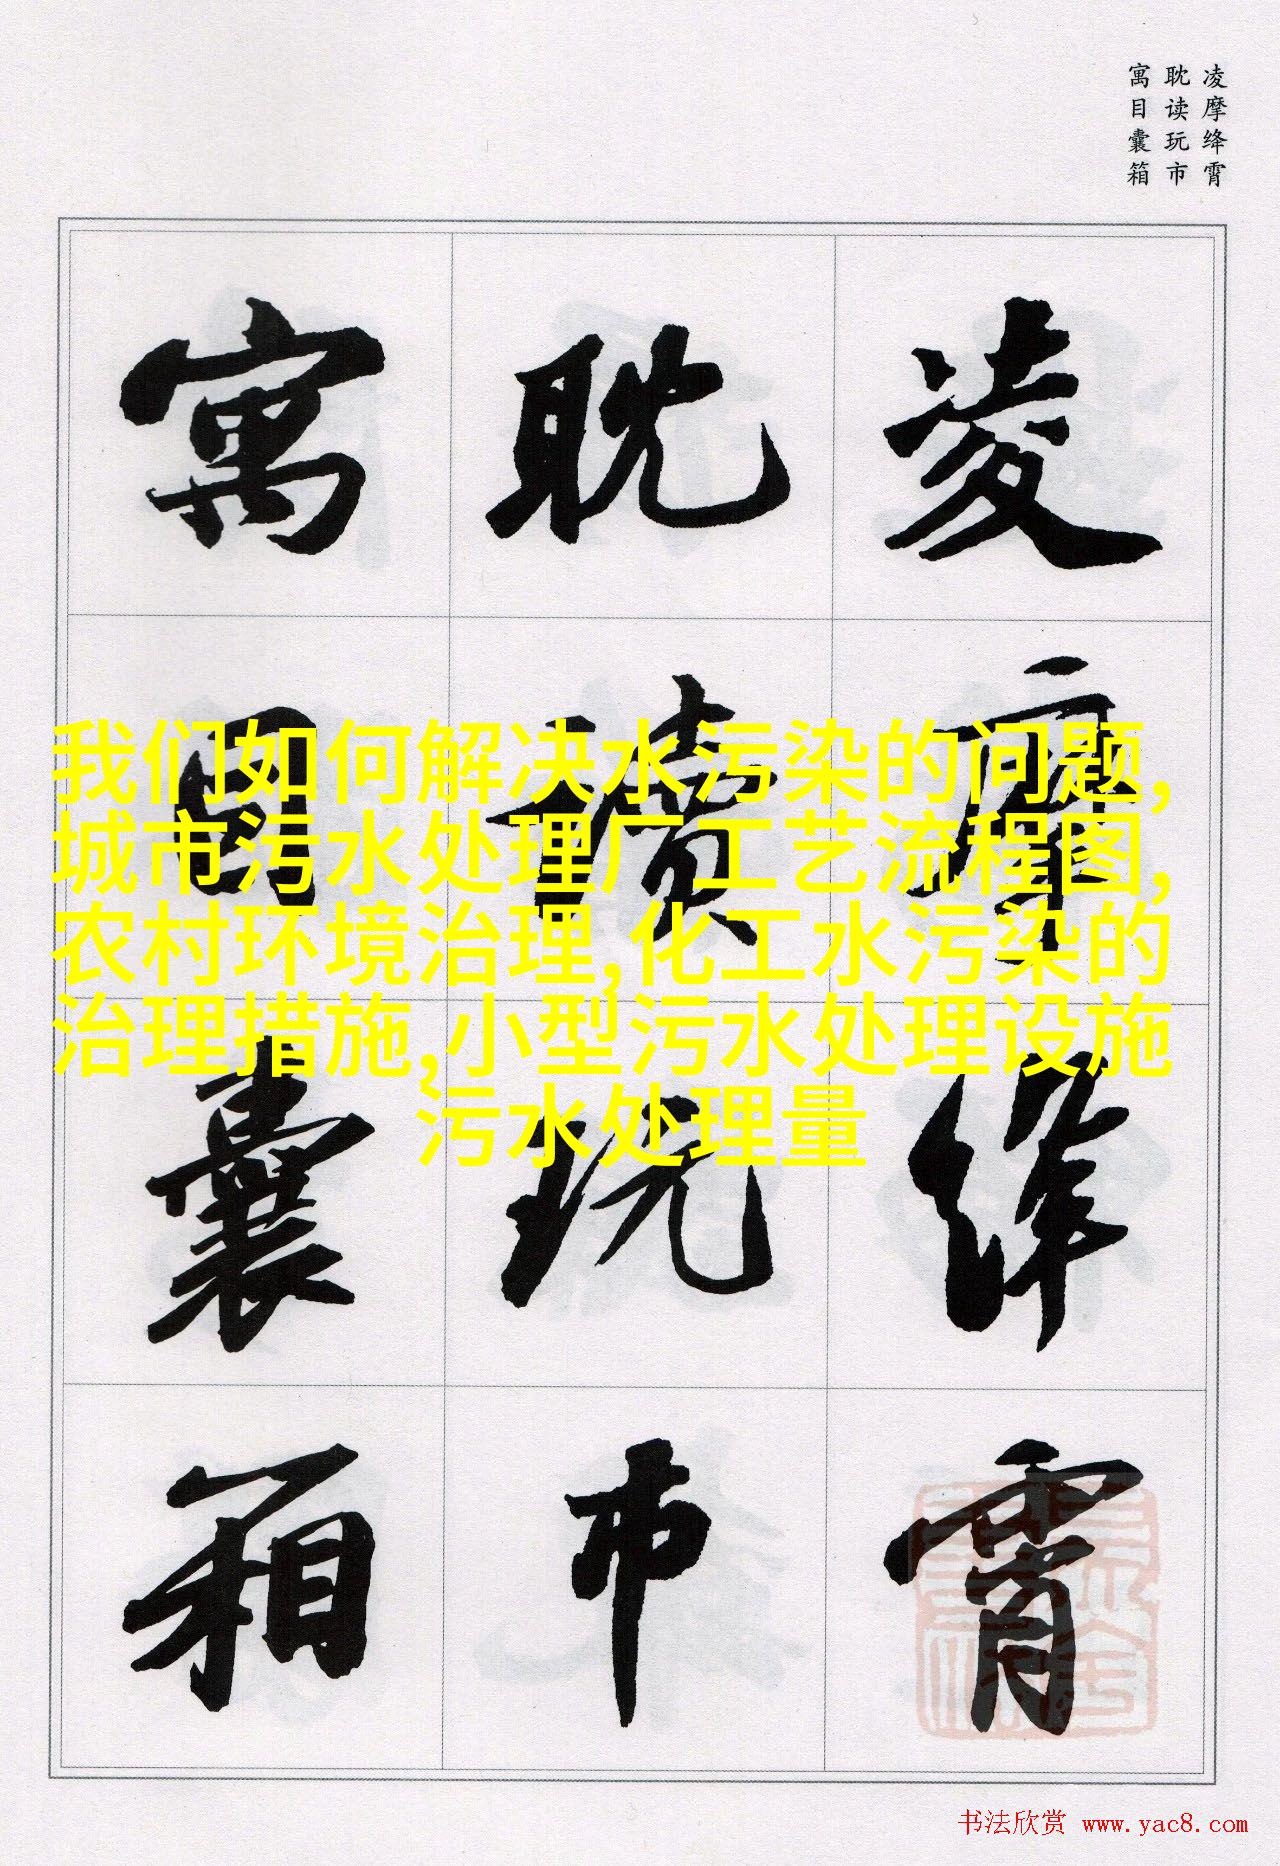 凌摩绛霄
耽读玩市
寓目囊箱
凌摩绛霄
耽讀玩市
寓目囊箱
我们如何解决水污染的问题,
城市污水处理厂工艺流程图,
农村环境治理,化工水污染的
治理措施,小型污水处理设施
污水处理量
书法欣赏 www.yac8.com